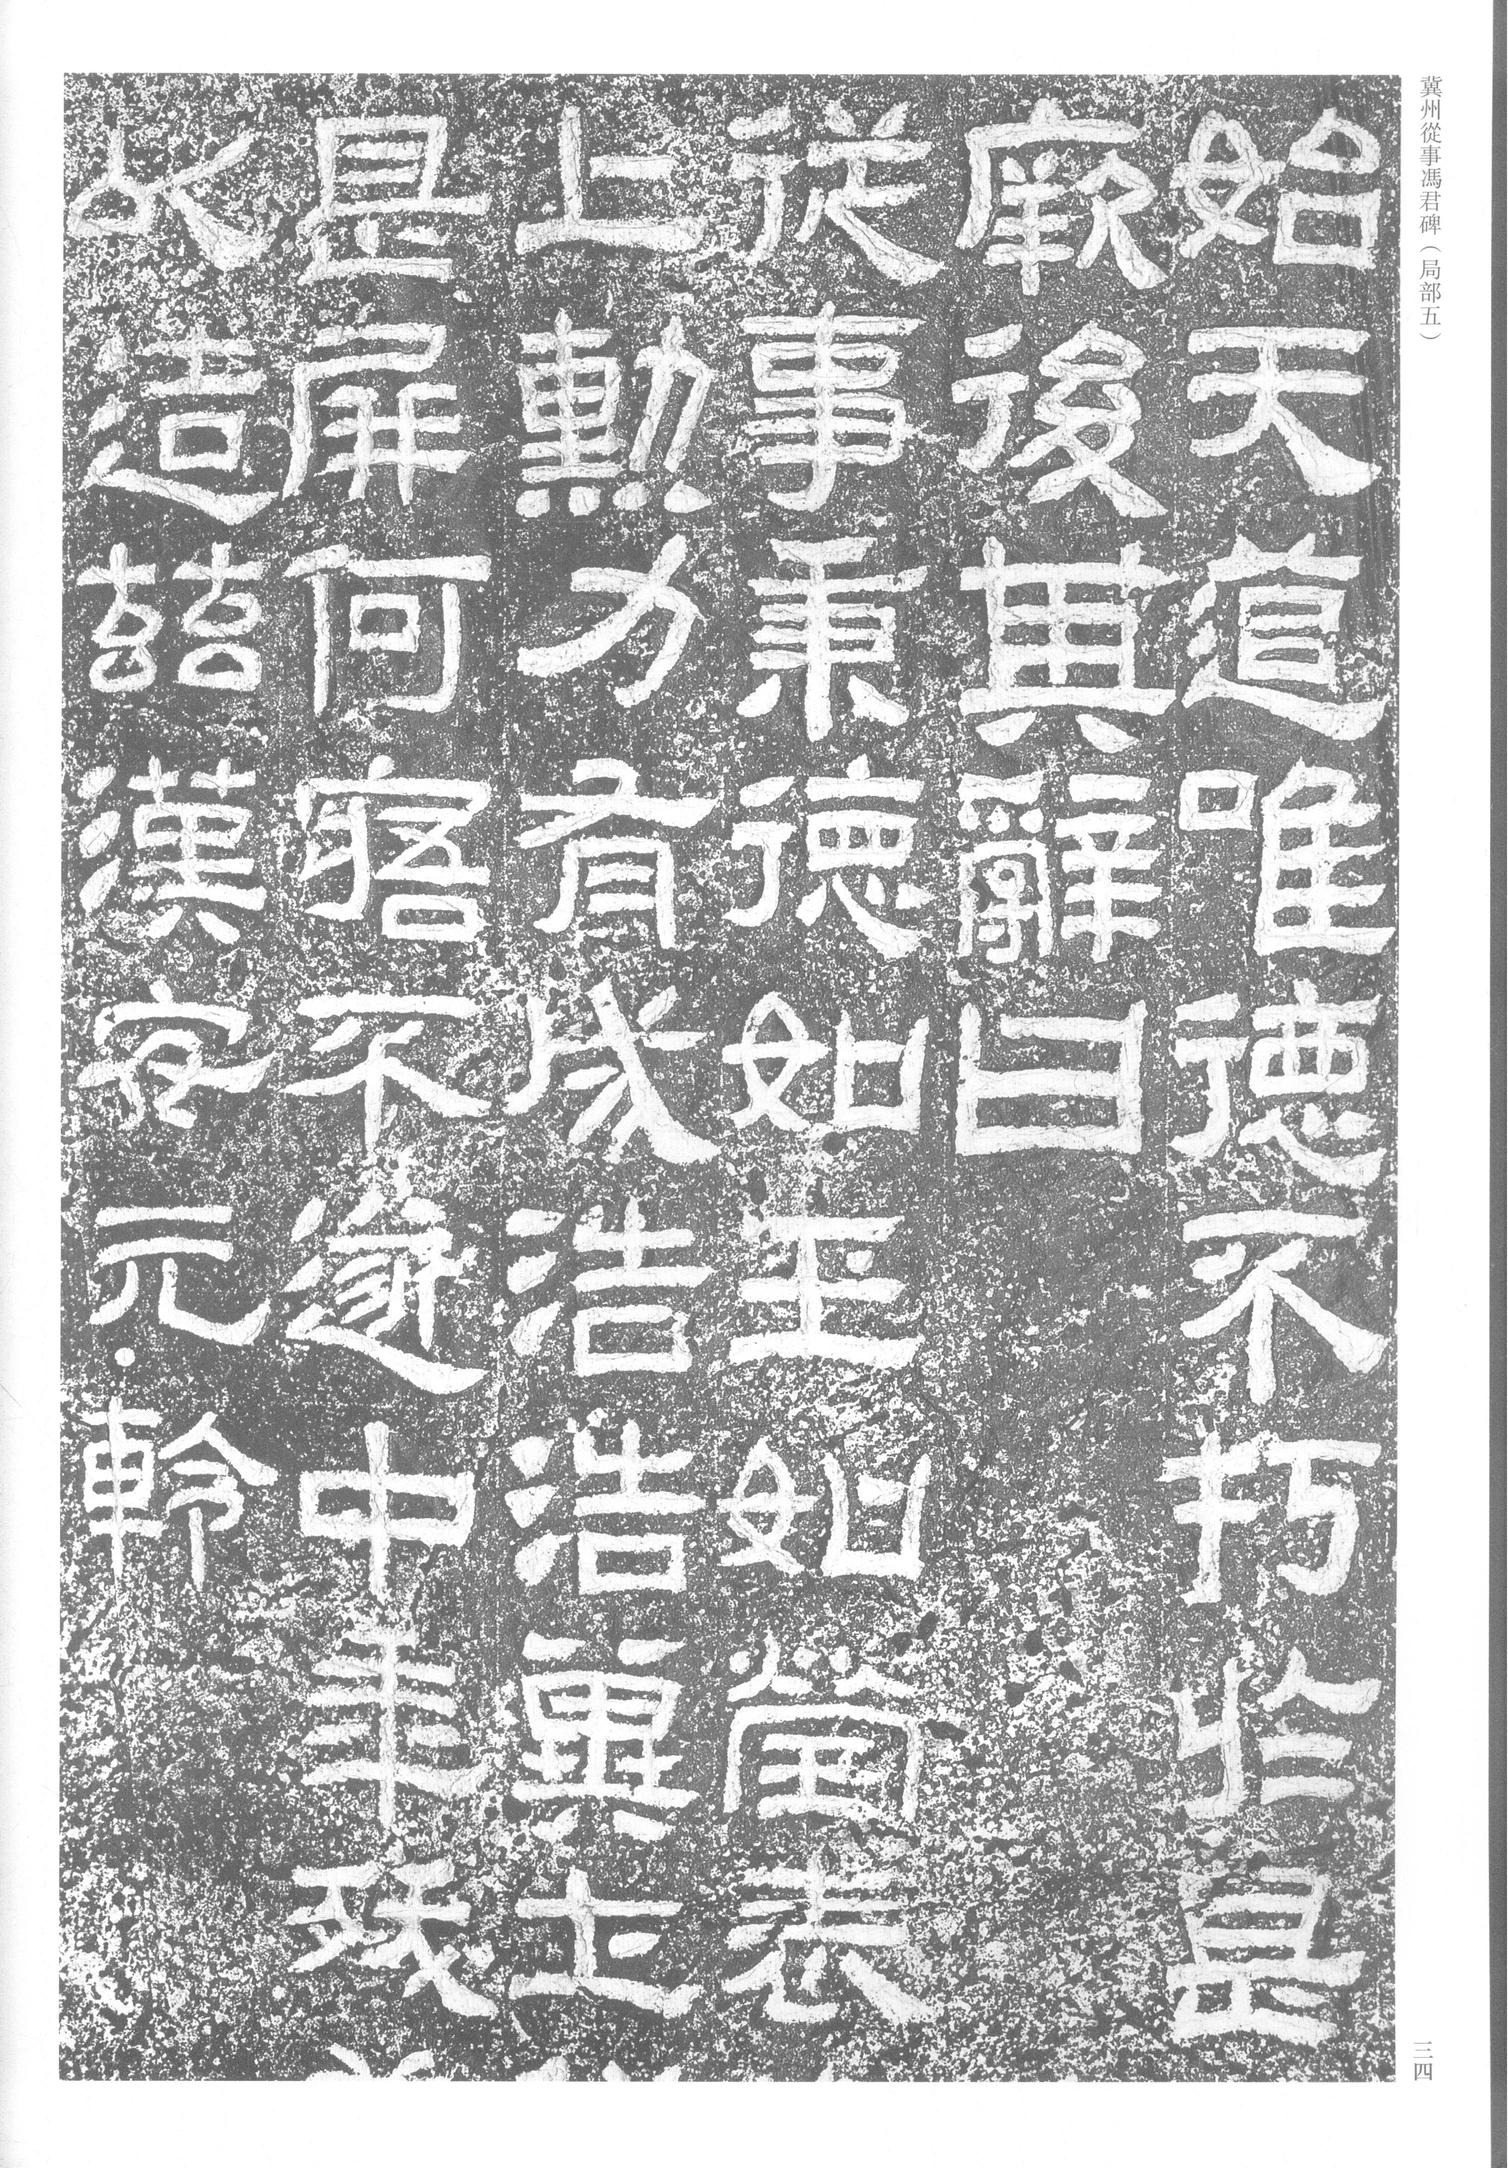 冀州從事馮君碑（局部五）
始天道唯德不朽於是
厥後其辭曰
從事秉德如玉如瑩表
上勳力有成浩浩冀土
是屏何寤不遂中年
以造喆漢安元·軨
三四